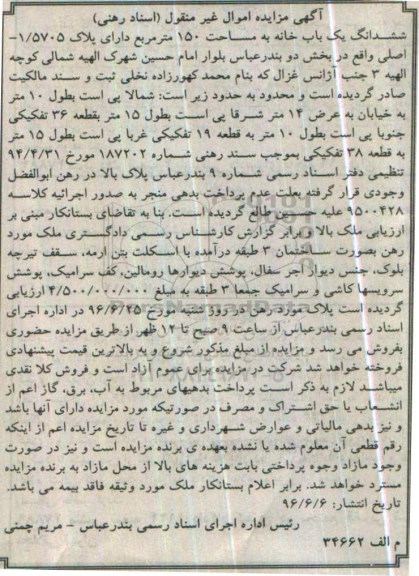 آگهی مزایده اموال غیر منقول (اسناد رهنی)
ششدانگ یک باب خانه به مساحت ۱۵۰ مترمربع دارای پلاک ۱/۵۷۰۵-
اصلی واقع در بخش دو بندرعباس بلوار امام حسین شهرک الهیه شمالی کوچه
الهیه ۳ جنب آژانس غزال که بنام محمد کهورزاده نخلی ثبت و سند مالکیت
صادر گردیده است و محدود به حدود زیر است: شمالا پی است بطول ۱۰ متر
به خیابان به عرض ۱۴ متر شرقا پی است بطول ۱۵ متر بقطعه ۳۶ تفکیکی
جنوبا پی است بطول ۱۰ متر به قطعه ۱۹ تفکیکی غربا پی است بطول ۱۵ متر
به قطعه ۳۸ تفکیکی بموجب سند رهنی شماره ۱۸۷۲۰۲ مورخ ۹۴/۴/۳۱
تنظیمی دفتر اسناد رسمی شماره ۹ بندرعباس پلاک بالا در رهن ابوالفضل
وجودی قرار گرفته بعلت عدم پرداخت بدهی منجر به صدور اجرائیه کلاسه
۹۵۰۰۴۲۸ علیه حسین طالع گردیده است. بنا به تقاضای بستانکار مبنی بر
ارزیابی ملک بالا و برابر گزارش کارشناس رسمی دادگستری ملک مورد
رهن بصورت ساختمان ۳ طبقه درآمده با اسکلت بتن ارمه، سقف تیرچه
بلوک، جنس دیوار آجر سفال، پوشش دیوارها رومالین، کف سرامیک، پوشش
سرویسها کاشی و سرامیک جمعا ۳ طبقه به مبلغ ۴/۵۰۰/۰۰۰/۰۰۰ ارزیابی
گردیده است پلاک مورد رهن در روز شنبه مورخ ۹۶/۶/۲۵ در اداره اجرای
اسناد رسمی بندرعباس از ساعت ۹ صبح تا ۱۲ ظهر از طریق مزایده حضوری
بفروش می رسد و مزایده از مبلغ مذکور شروع و به بالاترین قیمت پیشنهادی
فروخته خواهد شد شرکت در مزایده برای عموم آزاد است و فروش کلا نقدی
میباشد لازم به ذکر است پرداخت بدهیهای مربوط به آب، برق، گاز اعم از
انشعاب یا حق اشتراک و مصرف در صورتیکه مورد مزایده دارای آنها باشد
و نیز بدهی مالیاتی و عوارض شهرداری و غیره تا تاریخ مزایده اعم از اینکه
رقم قطعی آن معلوم شده یا نشده بعهده ی برنده مزایده است و نیز در صورت
وجود مازاد وجوه پرداختی بابت هزینه های بالا از محل مازاد به برنده مزایده
مسترد خواهد شد. برابر اعلام بستانکار ملک مورد وثیقه فاقد بیمه می باشد.
تاریخ انتشار: ۹۶/۶/۶
رئیس اداره اجرای اسناد رسمی بندرعباس - مریم چمنی
م الف ۳۴۶۶۲